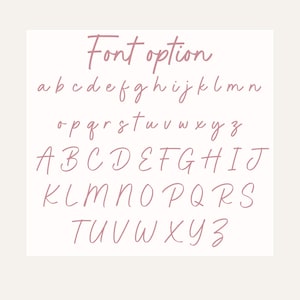 Font option
a b c d e f g h i j k l m n
o p q r s t u v w x y z
A B C D E F G H I J
K L M N O P Q R S
T U V W X Y Z